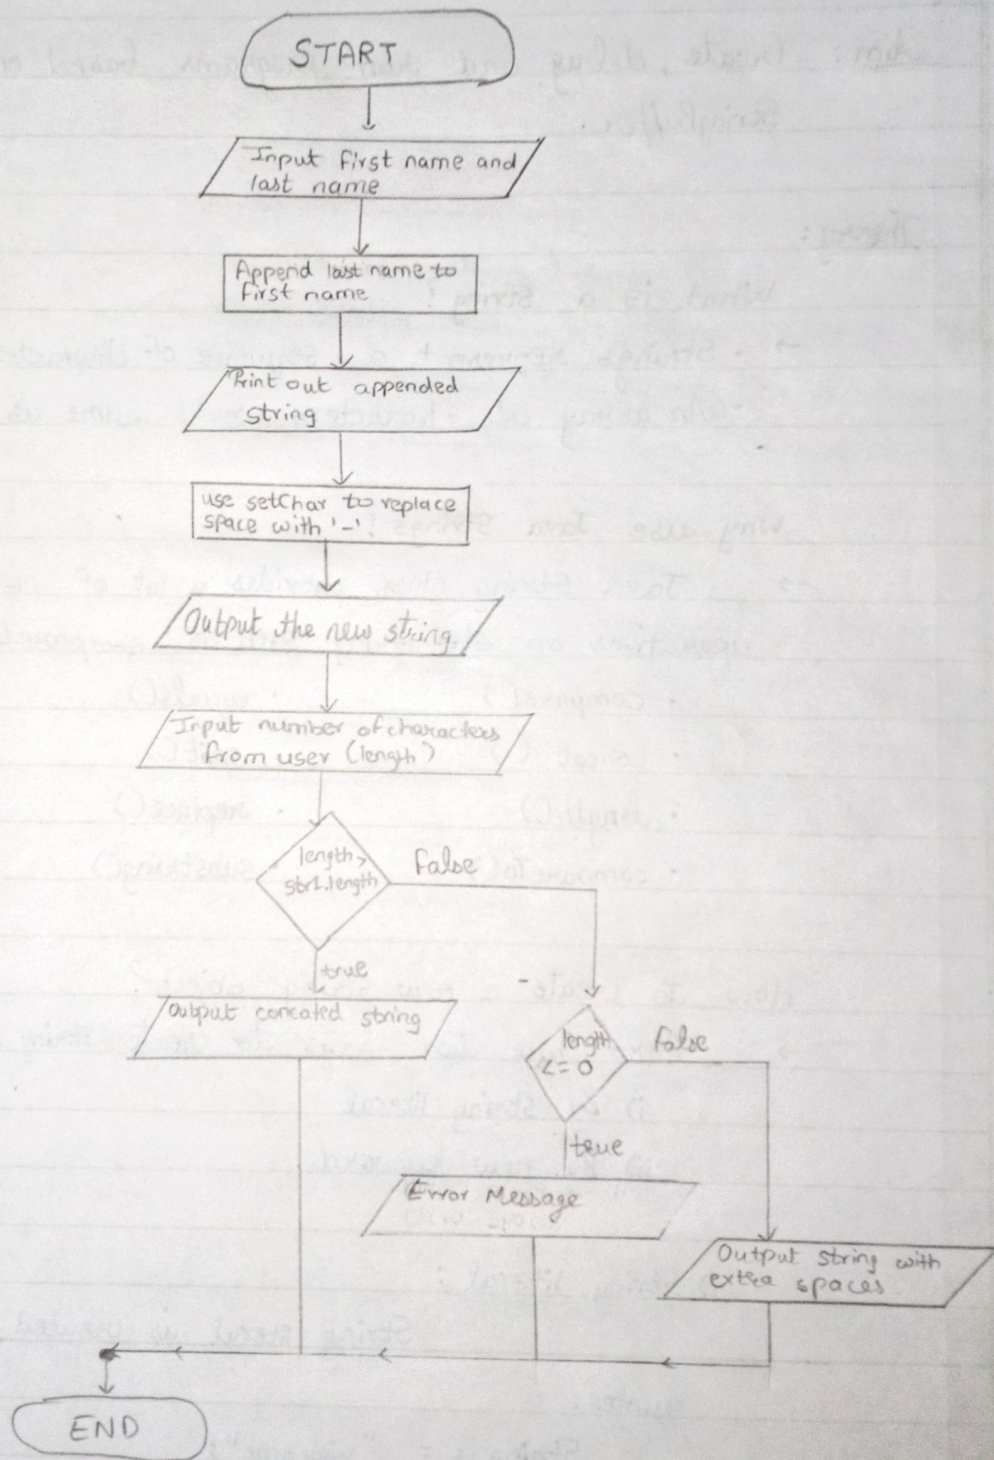 START
Input first name and
last name
Append last name to
first name
Print out appended
string
use setChar to replace
space with '-'
Output the new string
Input number of characters
from user (length)
length >
str1.length
false
true
Output concated string
length
<= 0
false
true
Error Message
Output string with
extra spaces
END